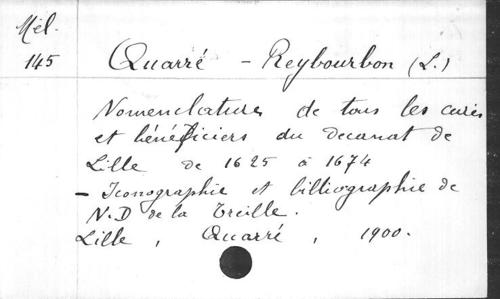 Mél.
145
Quarré - Reybourbon (L.)
Nomenclature de tous les curés
et bénéficiers du decanat de
Lille de 1625 à 1674
- Iconographie et bibliographie de
N.D de la Treille.
Lille, Quarré, 1900.